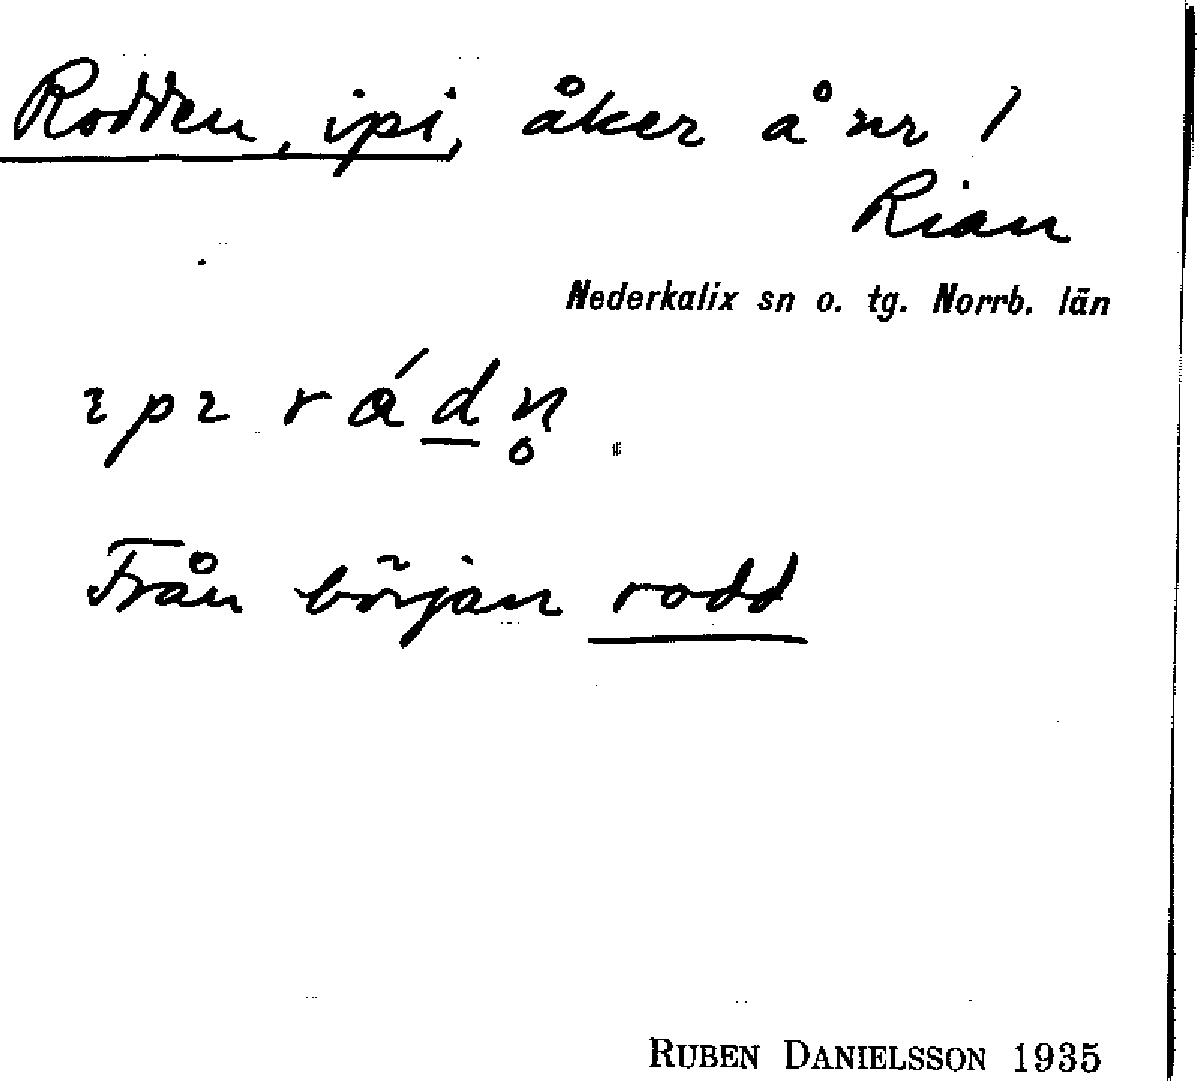 Rodden, ipi, åker å nr 1
Rian
Nederkalix sn o. tg. Norrb. län
ɪpɪ rád̲n̥
Från början rodd
RUBEN DANIELSSON 1935